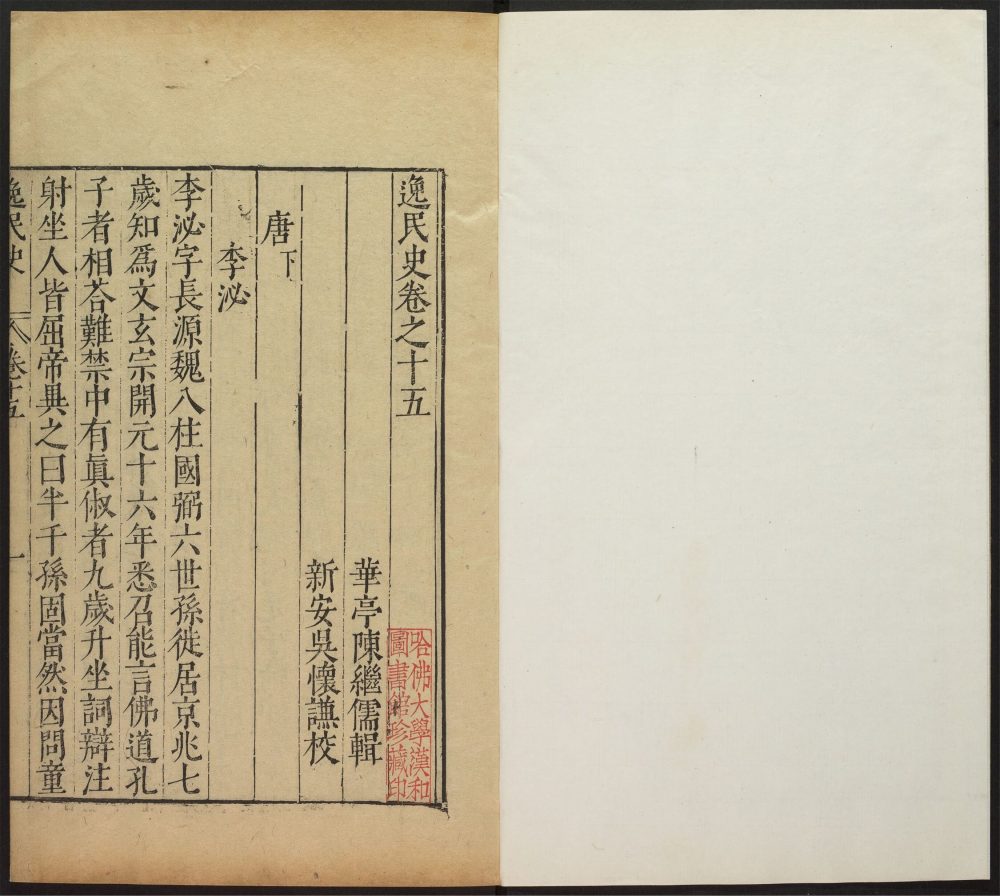 逸民史卷之十五
哈佛大學漢和
圖書館珍藏印
華亭陳繼儒輯
新安吳懷謙校
唐下
李泌
李泌字長源魏八柱國弼六世孫徙居京兆七
歲知爲文玄宗開元十六年悉召能言佛道孔
子者相荅難禁中有員俶者九歲升坐詞辯注
射坐人皆屈帝異之曰半千孫固當然因問童
逸民史 卷十五 一